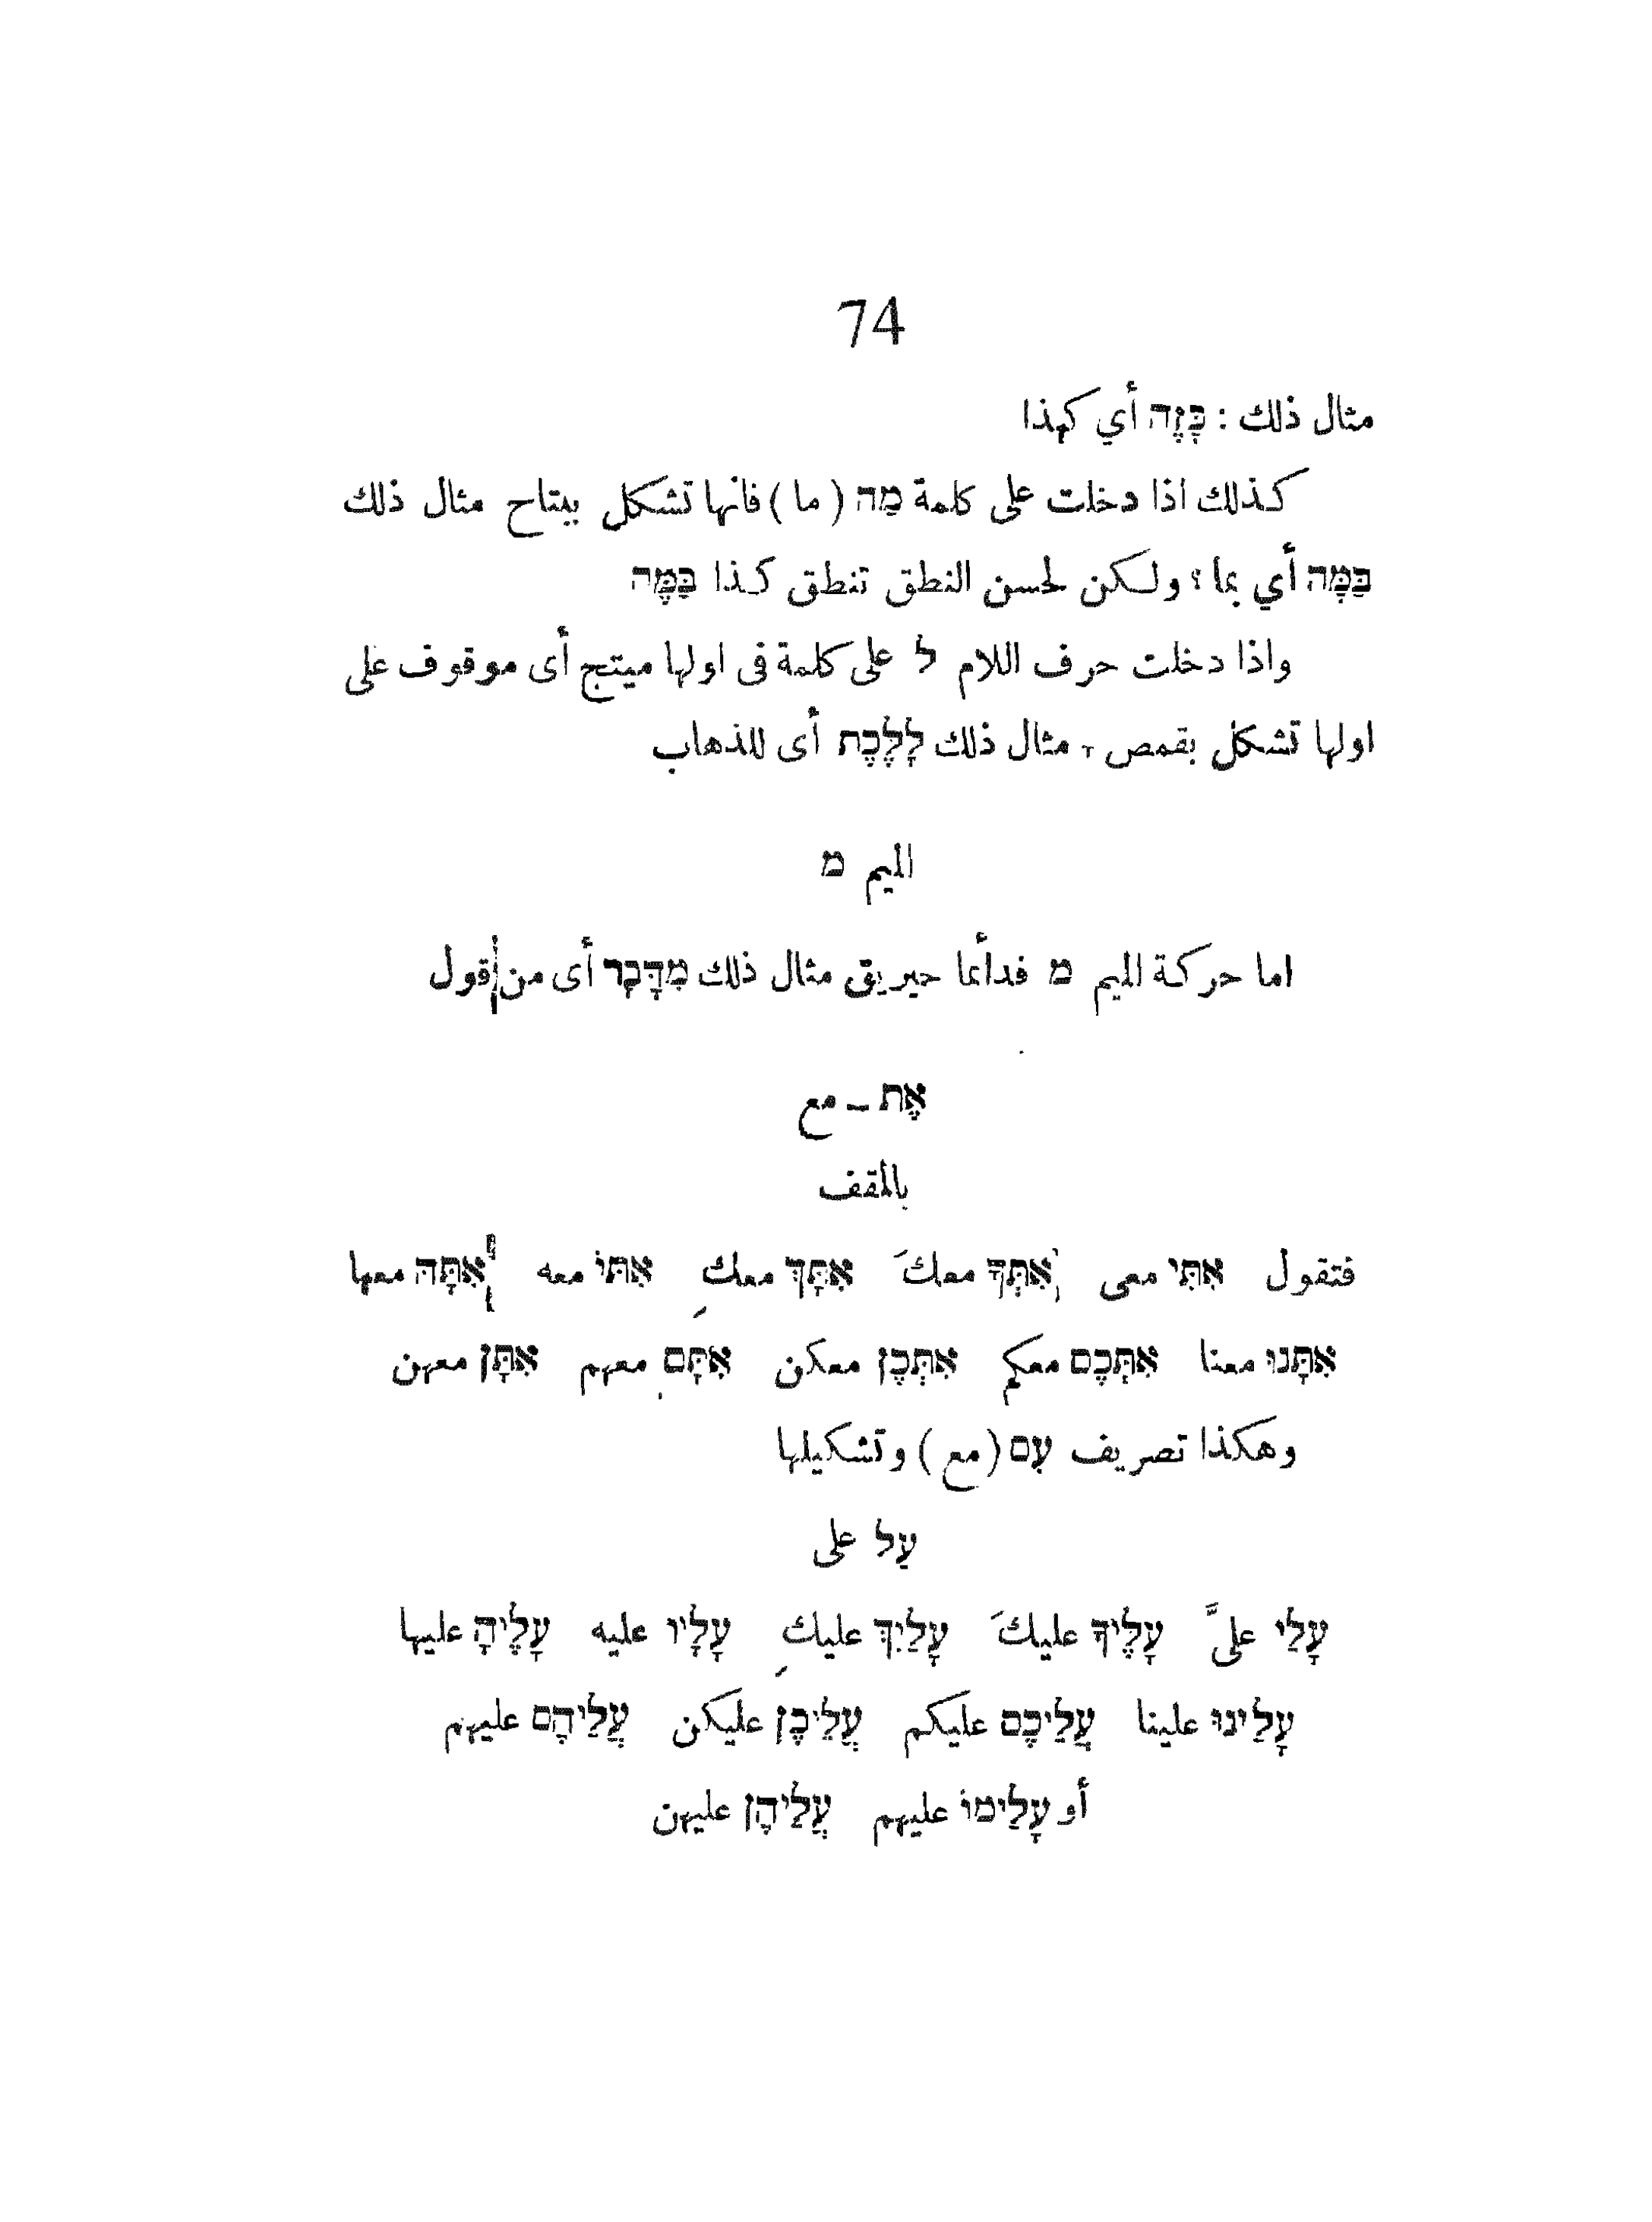 74
مثال ذلك : כָּזֶה أي كهذا
كذلك اذا دخلت على كلمة מַה ( ما ) فانها تشكل بپتاح مثال ذلك
בַּמָּה أي بما ؟ ولكن لحسن النطق تنطق كذا בַּמֶּה
واذا دخلت حرف اللام ל على كلمة فى اولها ميتج أى موقوف على
اولها تشكل بقمص ָ مثال ذلك לָלֶכֶת أى للذهاب
الميم מ
اما حركة الميم מ فدأئما حيريق مثال ذلك מִדָּבָר أى من قول
אֶת – مع
بالمقف
فتقول אִתִּי معى אִתְּךָ معكَ אִתָּךְ معكِ אִתּוֹ معه אִתָּהּ معها
אִתָּנוּ معنا אִתְּכֶם معكم אִתְּכֶן معكن אִתָּם معهم אִתָּן معهن
وهكذا تصريف עִם ( مع ) وتشكيلها
עַל على
עָלַי علىَّ עָלֶיךָ عليكَ עָלַיִךְ عليكِ עָלָיו عليه עָלֶיהָ عليها
עָלַינוּ علينا עֲלַיכֶם عليكم עֲלֵיכֶן عليكن עֲלַיהֶם عليهم
أو עָלַימוֹ عليهم עֲלַיהֶן عليهن